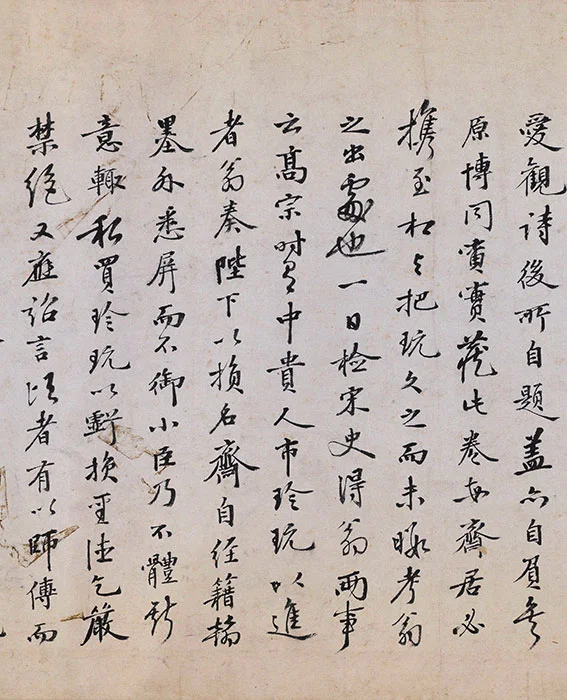 愛觀詩後所自題蓋亦自負矣
原博同賞寶藏此卷每齋居必
攜至相與把玩久之而未暇考翁
之出處也一日檢宋史得翁兩事
云高宗時有中貴人市珍玩以進
者翁奏陛下以損名齋自經籍翰
墨外悉屏而不御小臣乃不體斯
意輙私買珍玩以虧損聖德乞嚴
禁絕又應詔言頃者有以師傅而